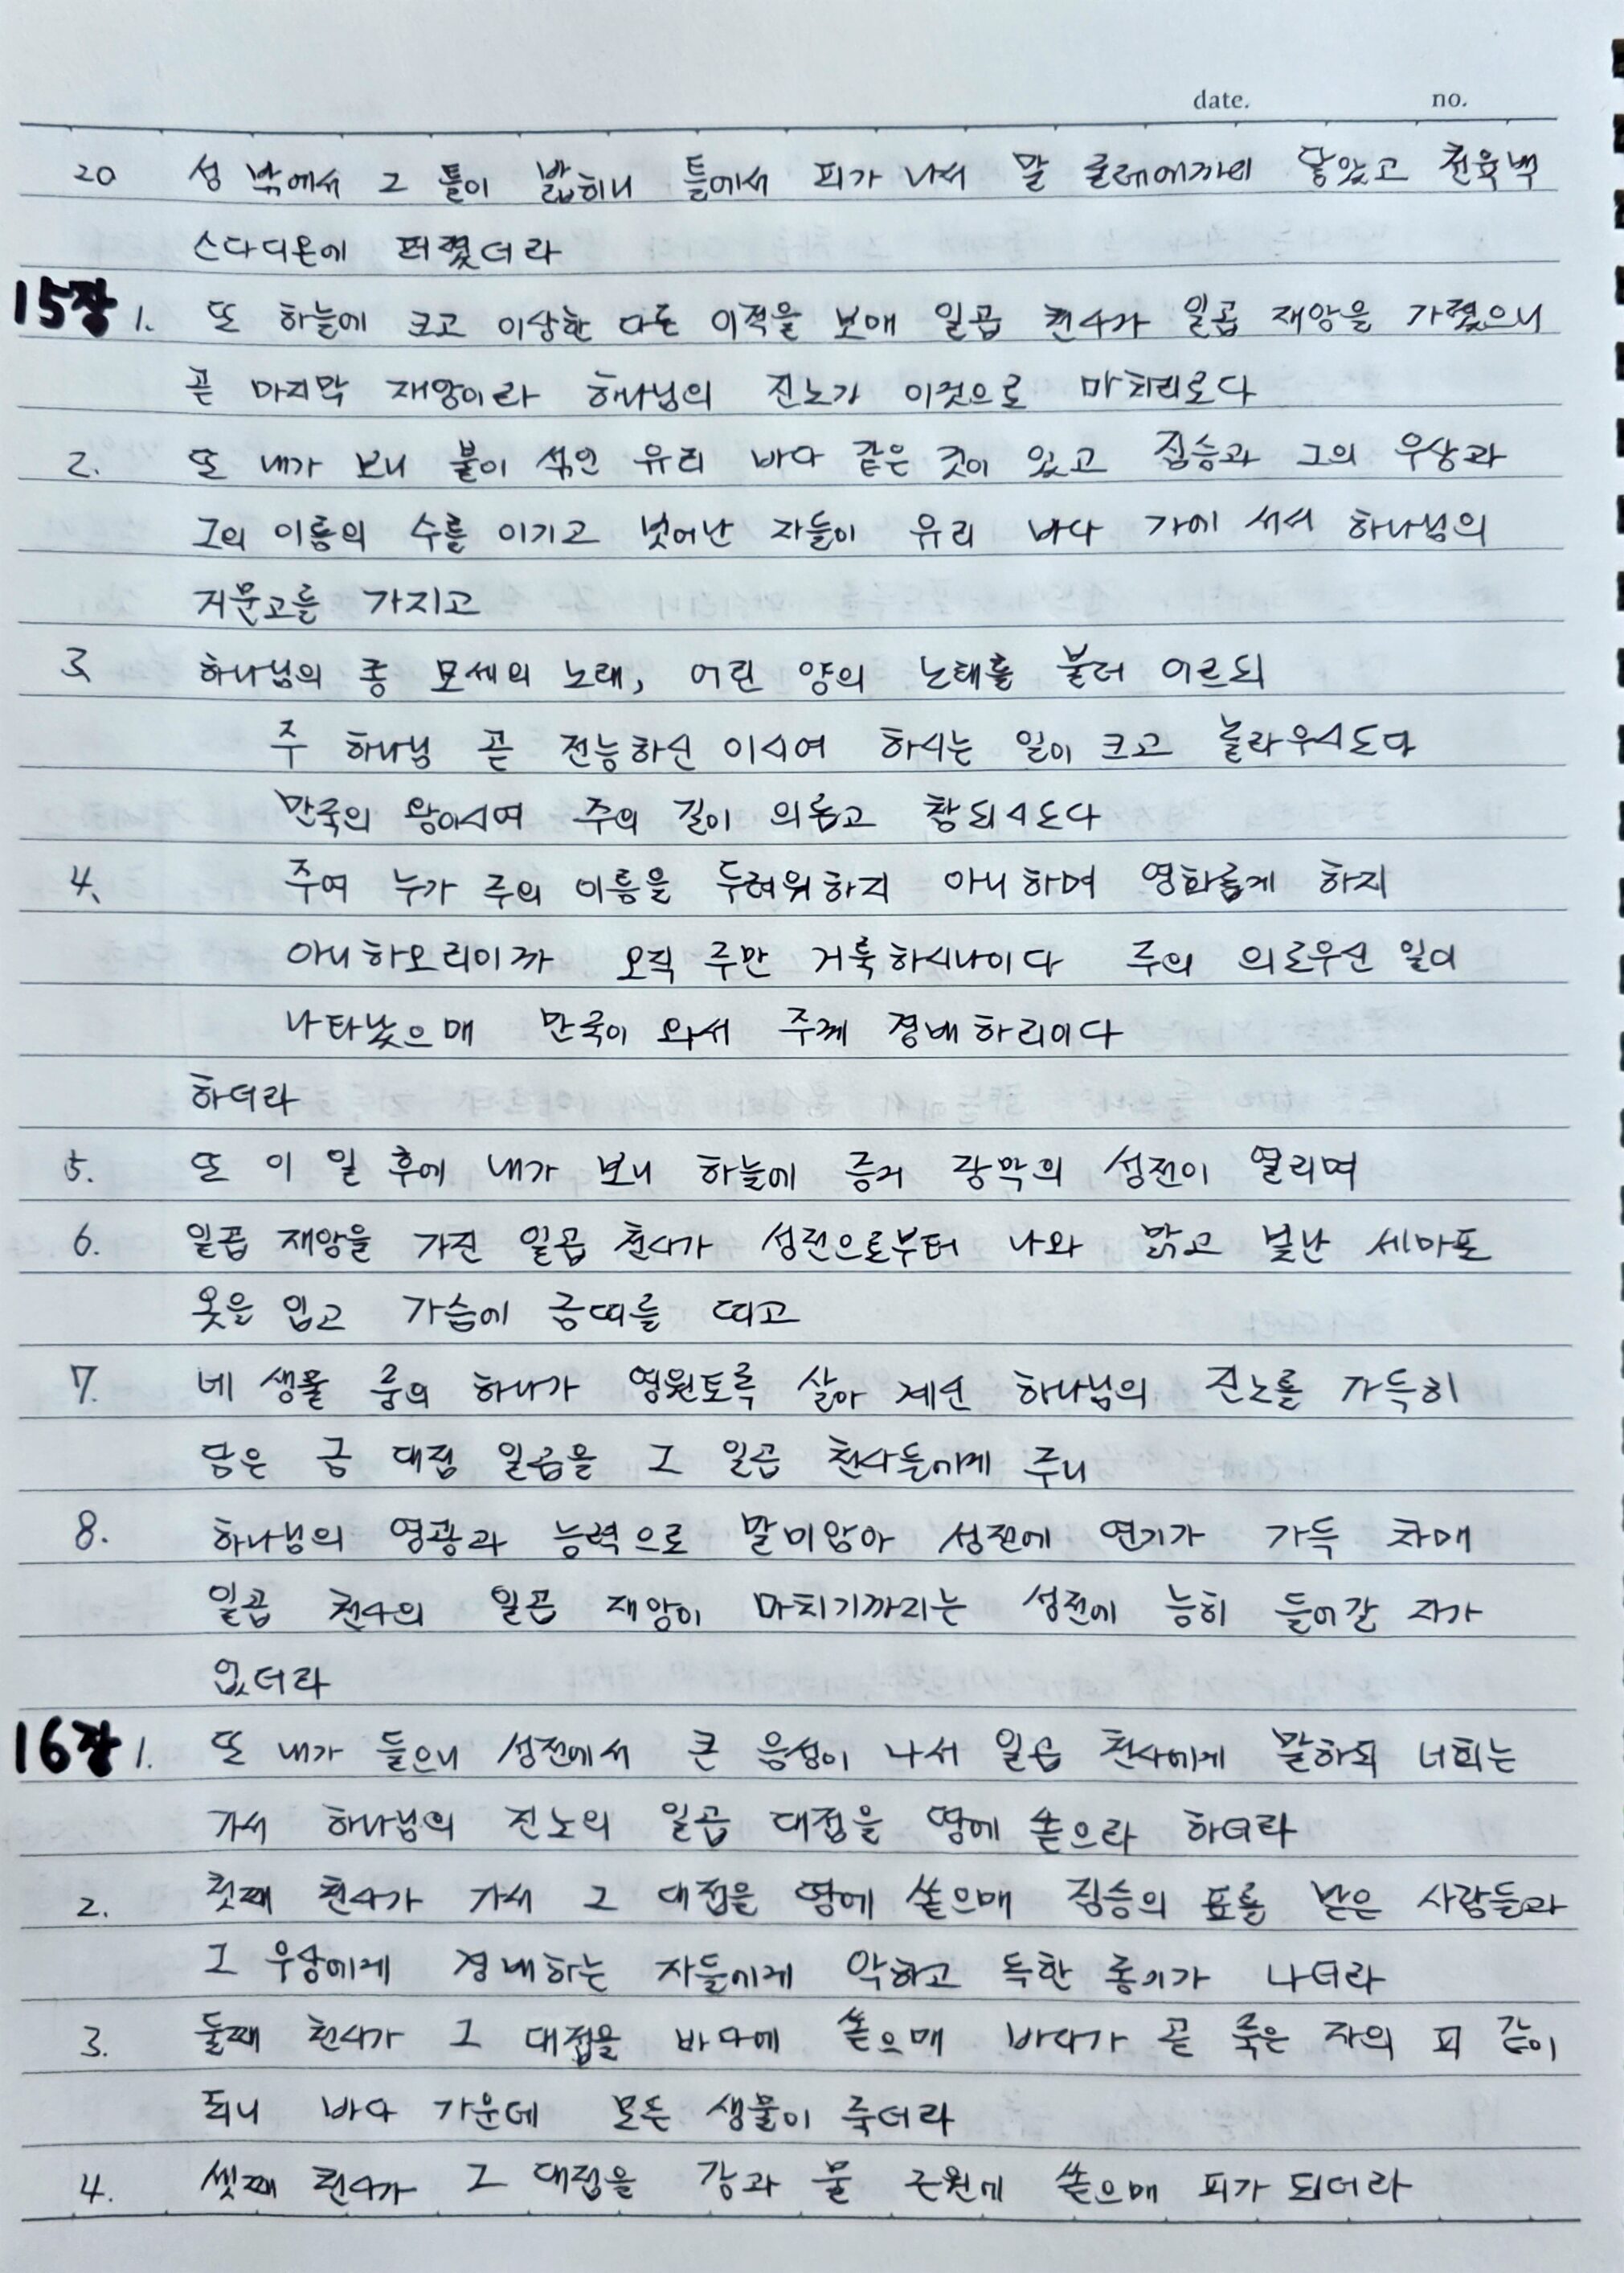 date. no.
20 성 밖에서 그 틀이 밟히니 틀에서 피가 나서 말 굴레에까지 닿았고 천육백
스다디온에 퍼졌더라
15장 1. 또 하늘에 크고 이상한 다른 이적을 보매 일곱 천사가 일곱 재앙을 가졌으니
곧 마지막 재앙이라 하나님의 진노가 이것으로 마치리로다
2. 또 내가 보니 불이 섞인 유리 바다 같은 것이 있고 짐승과 그의 우상과
그의 이름의 수를 이기고 벗어난 자들이 유리 바다 가에 서서 하나님의
거문고를 가지고
3. 하나님의 종 모세의 노래, 어린 양의 노래를 불러 이르되
주 하나님 곧 전능하신 이시여 하시는 일이 크고 놀라우시도다
만국의 왕이시여 주의 길이 의롭고 참되시도다
4. 주여 누가 주의 이름을 두려워하지 아니하며 영화롭게 하지
아니하오리이까 오직 주만 거룩하시나이다 주의 의로우신 일이
나타났으매 만국이 와서 주께 경배하리이다
하더라
5. 또 이 일 후에 내가 보니 하늘에 증거 장막의 성전이 열리며
6. 일곱 재앙을 가진 일곱 천사가 성전으로부터 나와 맑고 빛난 세마포
옷을 입고 가슴에 금띠를 띠고
7. 네 생물 중의 하나가 영원토록 살아 계신 하나님의 진노를 가득히
담은 금 대접 일곱을 그 일곱 천사들에게 주니
8. 하나님의 영광과 능력으로 말미암아 성전에 연기가 가득 차매
일곱 천사의 일곱 재앙이 마치기까지는 성전에 능히 들어갈 자가
없더라
16장 1. 또 내가 들으니 성전에서 큰 음성이 나서 일곱 천사에게 말하되 너희는
가서 하나님의 진노의 일곱 대접을 땅에 쏟으라 하더라
2. 첫째 천사가 가서 그 대접을 땅에 쏟으매 짐승의 표를 받은 사람들과
그 우상에게 경배하는 자들에게 악하고 독한 종기가 나더라
3. 둘째 천사가 그 대접을 바다에 쏟으매 바다가 곧 죽은 자의 피 같이
되니 바다 가운데 모든 생물이 죽더라
4. 셋째 천사가 그 대접을 강과 물 근원에 쏟으매 피가 되더라